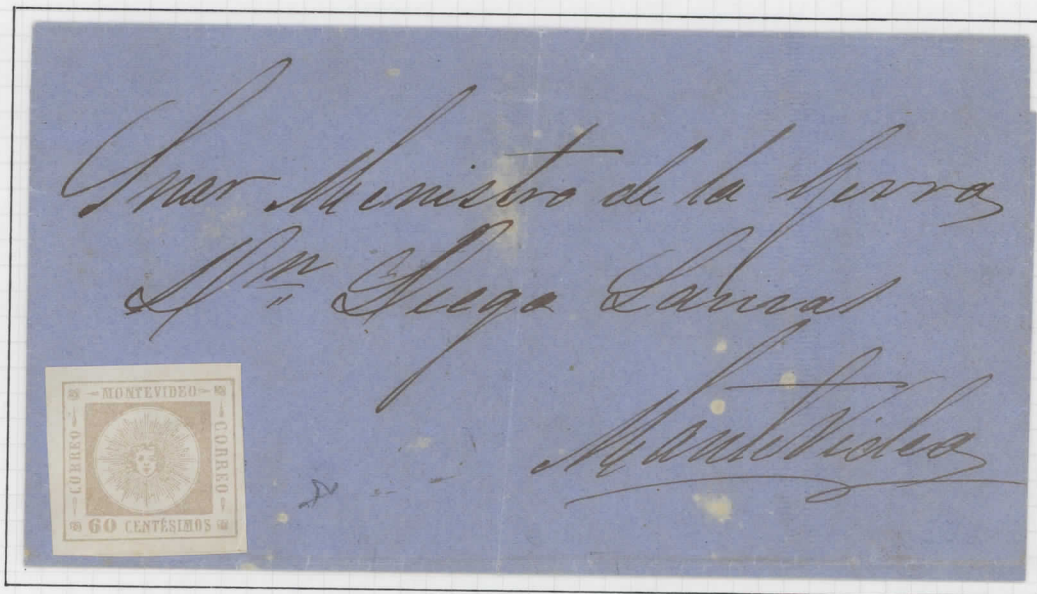 Snor Menistro de la Gerra
Dn Diego Lamas
MonteVideo
MONTEVIDEO
CORREO
CORREO
60 CENTÉSIMOS